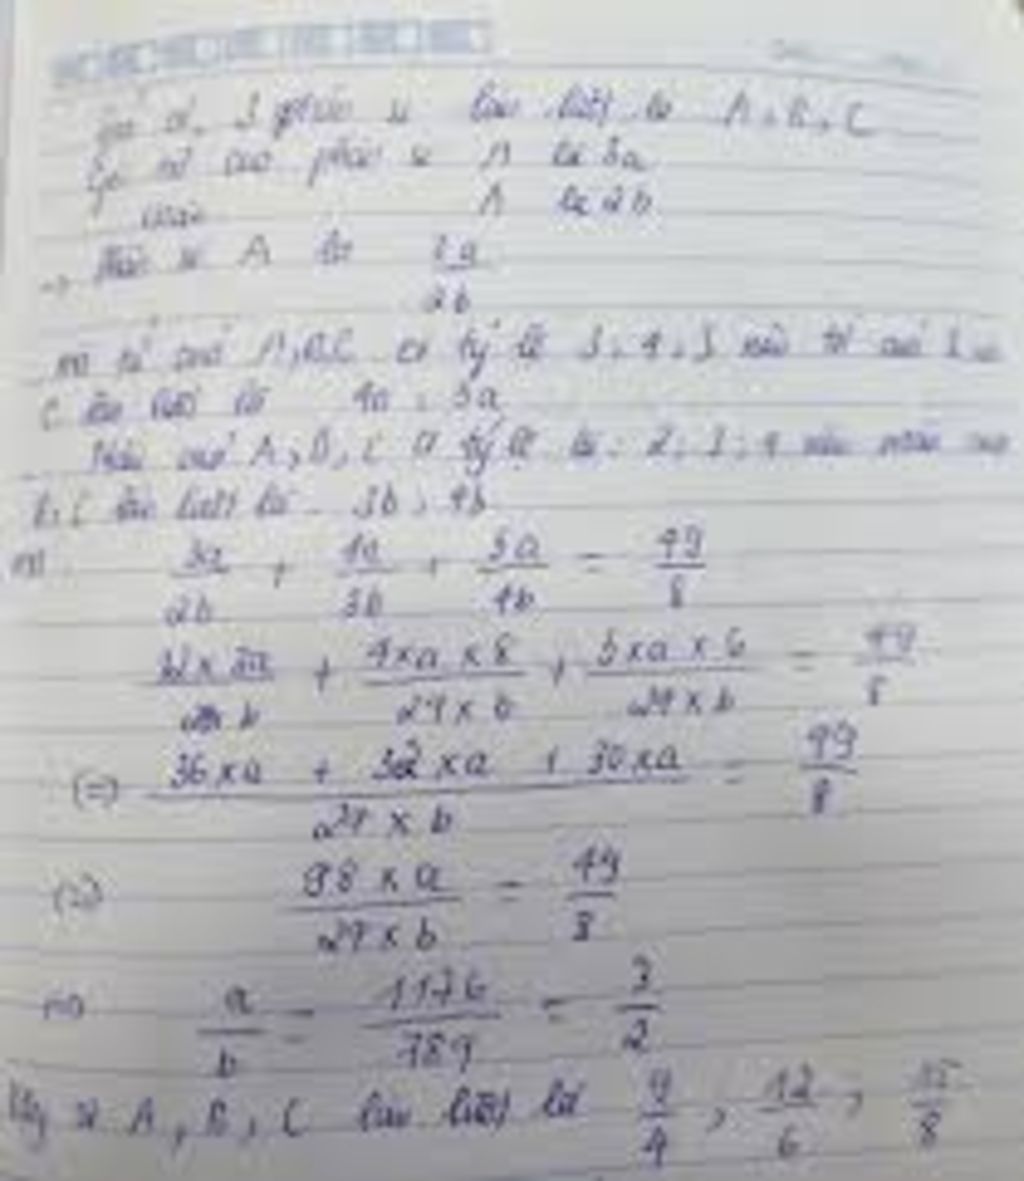 3 phân số lần lượt là A, B, C
Gọi tử của phân số A là 3a
A là 2b
=> Phân số A là 3a/2b
mà tử của A, B, C có tỷ lệ 3, 4, 5 nên tử của
C lần lượt là 4a, 5a
Mẫu của A, B, C có tỷ lệ là: 2; 3; 4 nên mẫu của
B, C lần lượt là 3b, 4b
3a/2b + 4a/3b + 5a/4b = 49/8
12 x 3a / b + 4 x a x 8 / 24 x b + 5 x a x 6 / 24 x b = 49/8
(=) 36 x a + 32 x a + 30 x a / 24 x b = 49/8
98 x a / 24 x b = 49/8
a/b = 1176/784 = 3/2
Vậy số A, B, C lần lượt là 9/4, 12/6, 15/8